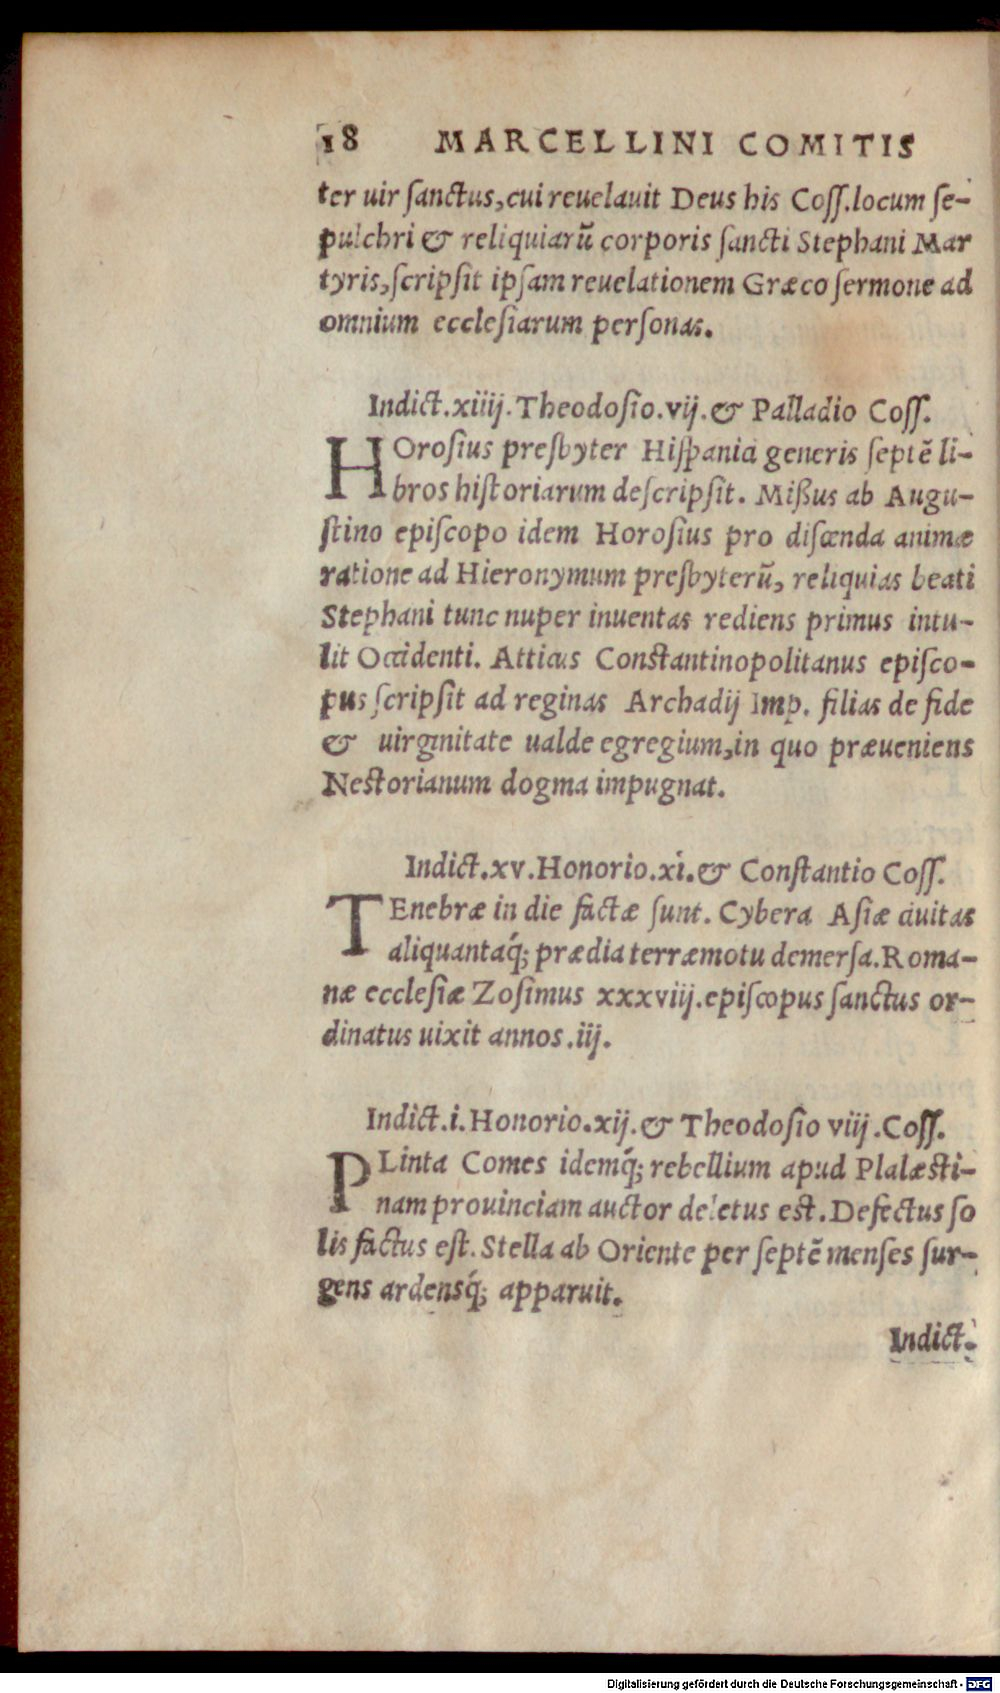 18 MARCELLINI COMITIS
ter uir ſanctus, cui reuelauit Deus his Coſſ. locum ſe-
pulchri & reliquiarũ corporis ſancti Stephani Mar
tyris, ſcripſit ipſam reuelationem Græco ſermone ad
omnium eccleſiarum perſonas.
Indict. xiiij. Theodoſio. vij. & Palladio Coſſ.
HOroſius preſbyter Hiſpania generis ſeptẽ li-
bros hiſtoriarum deſcripſit. Mißus ab Augu-
ſtino epiſcopo idem Horoſius pro diſcenda animæ
ratione ad Hieronymum preſbyterũ, reliquias beati
Stephani tunc nuper inuentas rediens primus intu-
lit Occidenti. Atticus Conſtantinopolitanus epiſco-
pus ſcripſit ad reginas Archadij Imp. filias de fide
& uirginitate ualde egregium, in quo præueniens
Neſtorianum dogma impugnat.
Indict. xv. Honorio. xi. & Conſtantio Coſſ.
TEnebræ in die factæ ſunt. Cybera Aſiæ ciuitas
aliquantaq́; prædia terræmotu demerſa. Roma-
næ eccleſiæ Zoſimus xxxviij. epiſcopus ſanctus or-
dinatus uixit annos. iij.
Indict. i. Honorio. xij. & Theodoſio viij. Coſſ.
PLinta Comes idemq́; rebellium apud Plalæſti-
nam prouinciam auctor deletus eſt. Defectus ſo
lis factus eſt. Stella ab Oriente per ſeptẽ menſes ſur-
gens ardensq́; apparuit.
Indict.
Digitalisierung gefördert durch die Deutsche Forschungsgemeinschaft - DFG